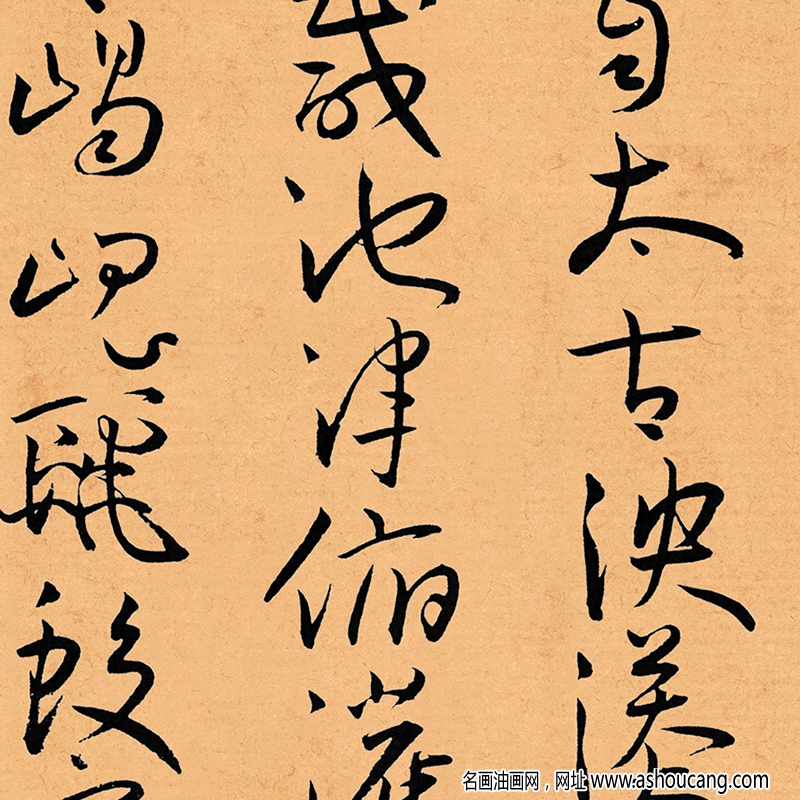 太古泱漭
咸池津俯灌
嵑蛟
名画油画网，网址 www.ashoucang.com